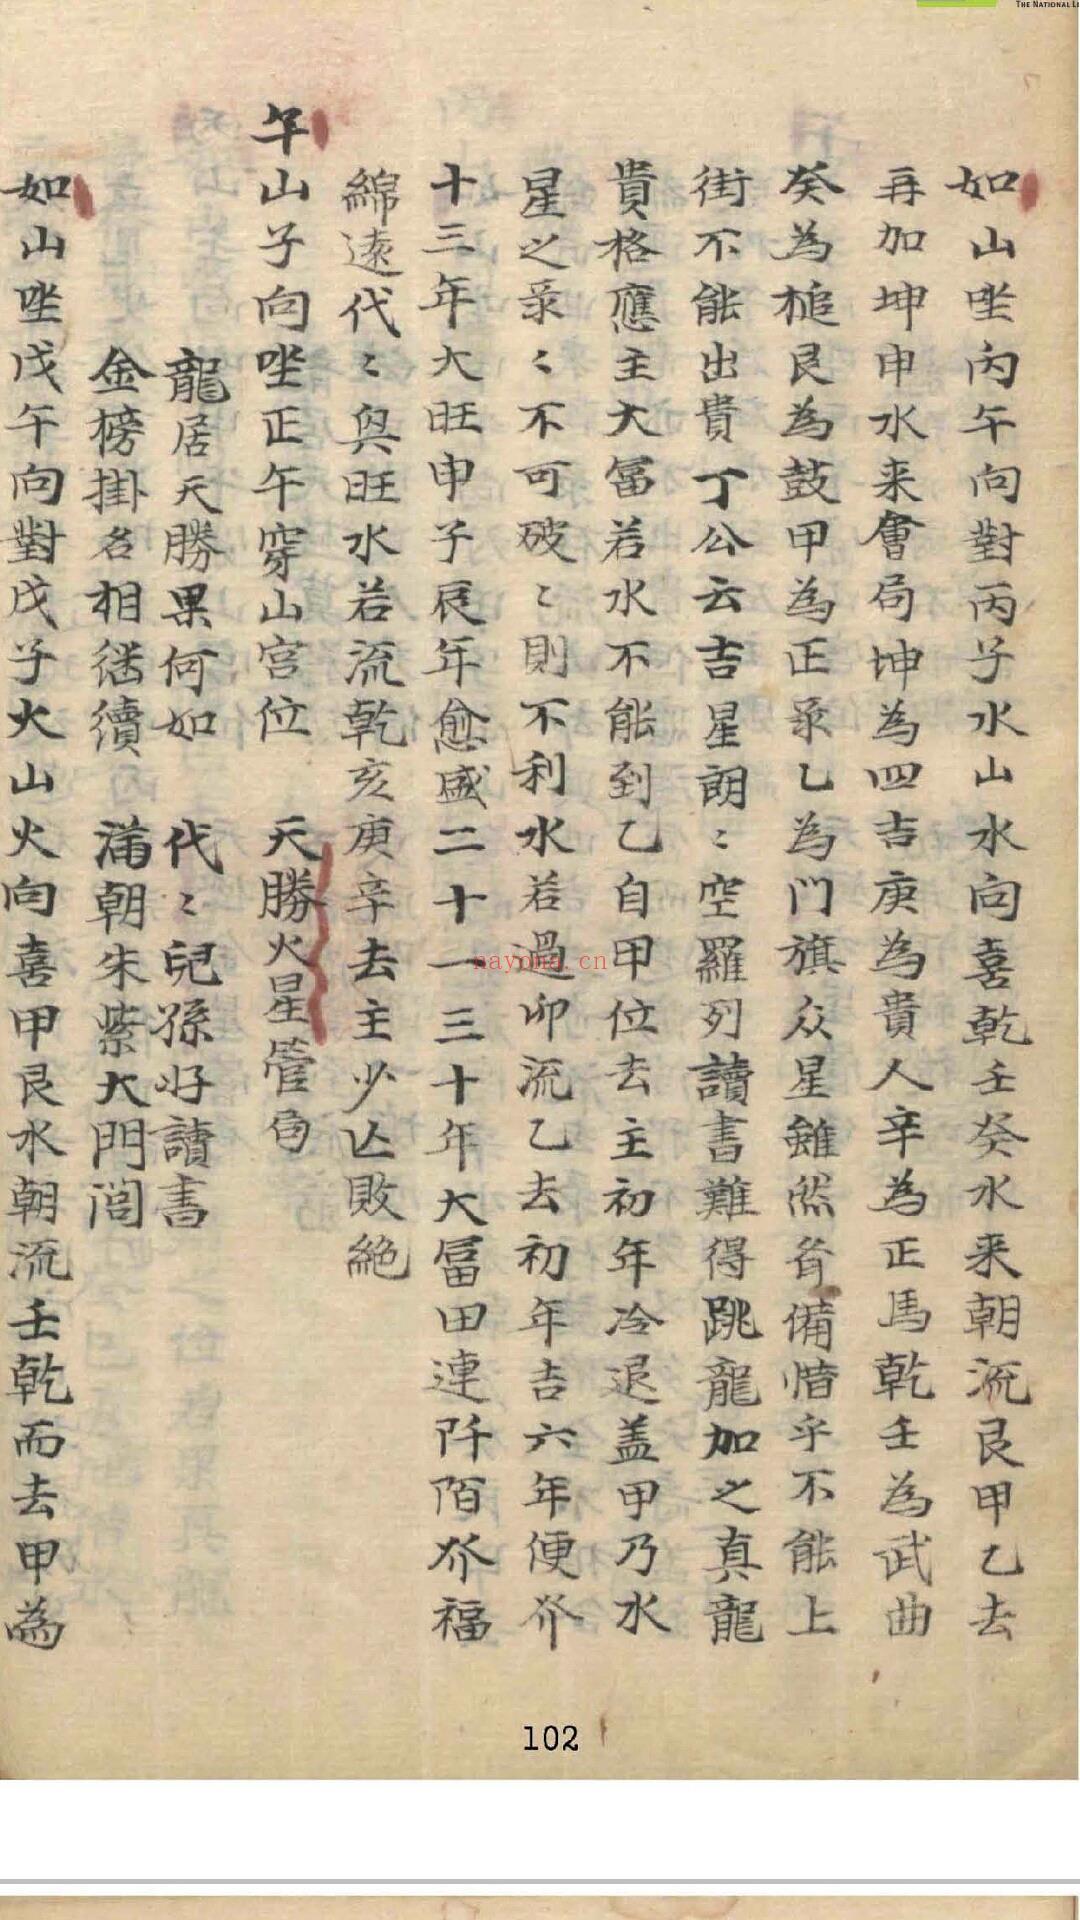 THE NATIONAL LI
如山坐丙午向對丙子水山水向喜乾壬癸水来朝流艮甲乙去
再加坤申水来會局坤為四吉庚為貴人辛為正馬乾壬為武曲
癸為槌艮為鼓甲為正录乙為門旗众星雖然皆備惜乎不能上
街不能出貴丁公云吉星朗〻空羅列讀書難得跳龍加之真龍
貴格應主大冨若水不能到乙自甲位去主初年冷退盖甲乃水
星之录〻不可破〻則不利水若過卯流乙去初年吉六年便發
十三年大旺申子辰年愈盛二十一三十年大冨田連阡陌發福
綿遠代〻興旺水若流乾亥庚辛去主少亡敗絕
午山子向坐正午穿山宮位 天勝火星管局
龍居天勝果何如 代〻兒孫好讀書
金榜掛名相継續 滿朝朱紫大門閭
如山坐戊午向對戊子火山火向喜甲艮水朝流壬乾而去甲為
nayona.cn
102